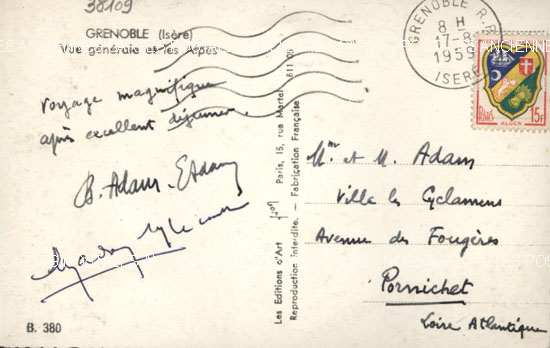 38109
GRENOBLE (Isère)
Vue générale et les Alpes
Voyage magnifique
après excellent déjeuner.
B. Adam
B. 380
Les Editions d'Art Paris, 15, rue Martel 811
Reproduction interdite. - Fabrication Française
GRENOBLE R.P.
8 H
17-8
1959
ISERE
POSTES
ALGER
15F
Mme et M. Adam
Villa les Cyclamens
Avenue des Fougères
Pornichet
Loire Atlantique